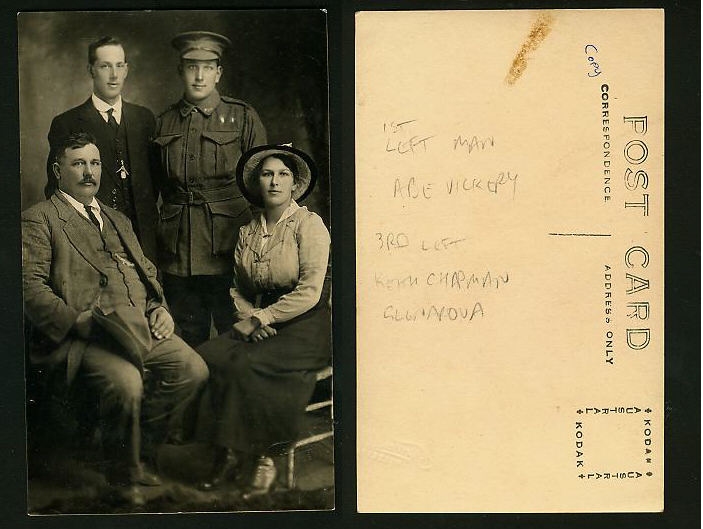 Copy
1ST
LEFT MAN
ABE VICKERY
3RD LEFT
KEITH CHAPMAN
GLENAROUA
POST CARD
CORRESPONDENCE
ADDRESS ONLY
KODAK
AUSTRAL
AUSTRAL
KODAK